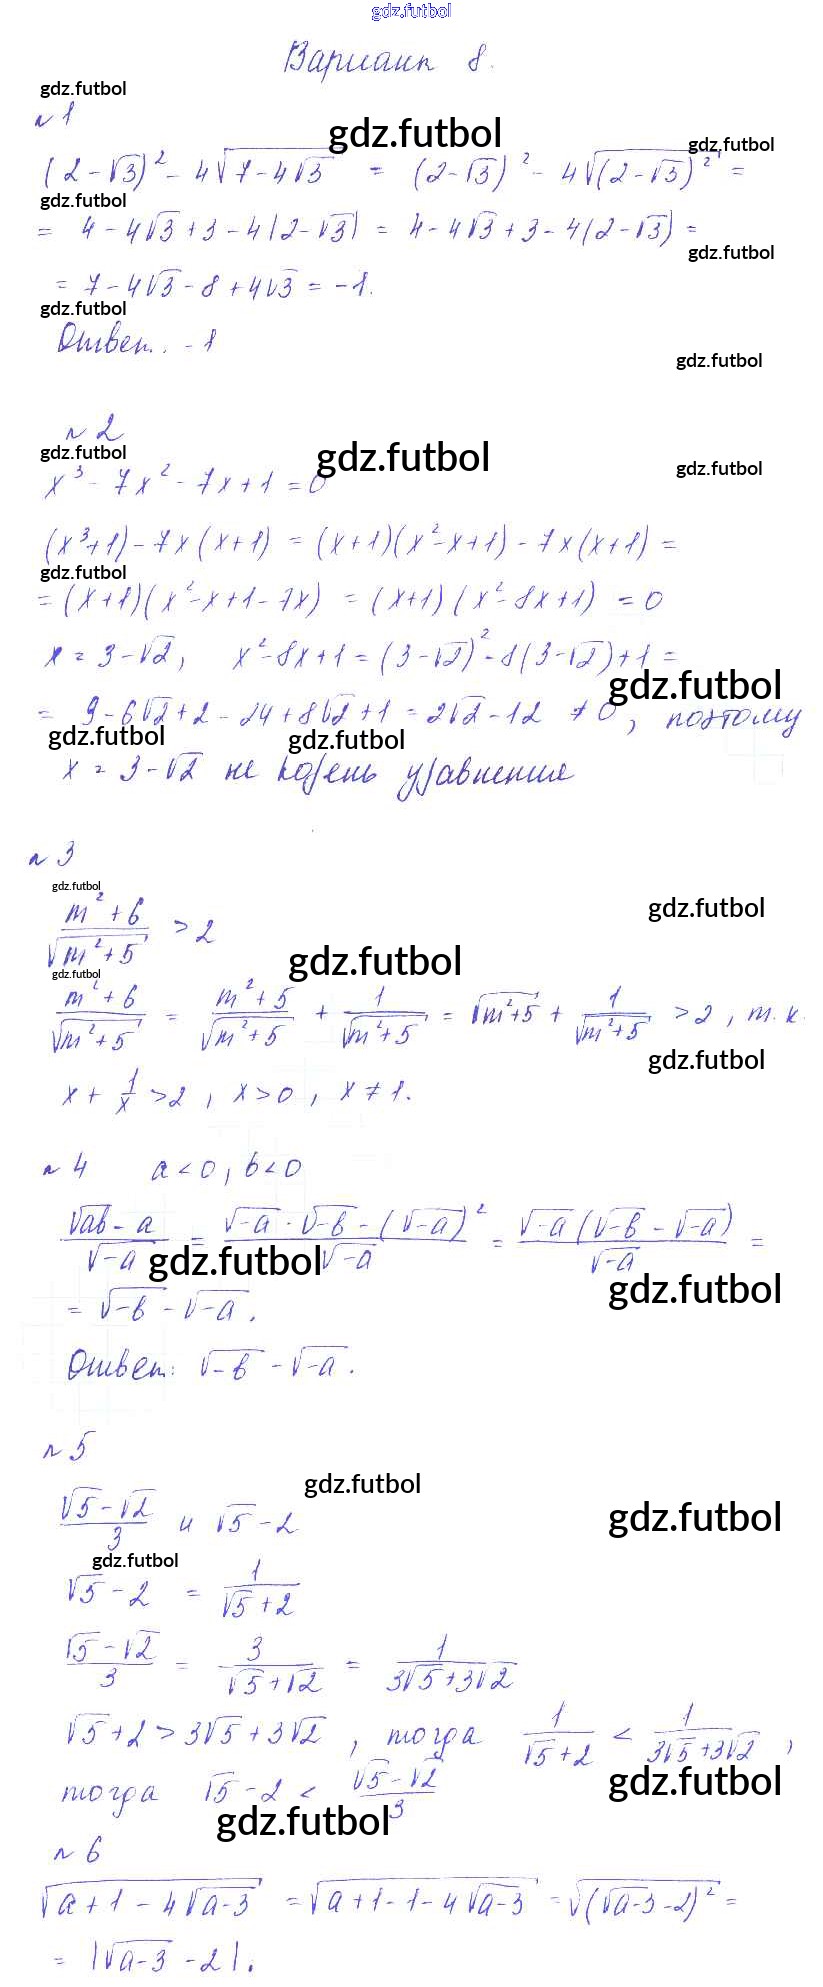 gdz.futbol
Вариант 8.
gdz.futbol
№1
gdz.futbol
gdz.futbol
(2-√3)² - 4√(7-4√3) = (2-√3)² - 4√((2-√3)²) =
gdz.futbol
= 4-4√3+3-4|2-√3| = 4-4√3+3-4(2-√3) =
gdz.futbol
= 7-4√3-8+4√3 = -1.
gdz.futbol
Ответ: -1
gdz.futbol
№2
gdz.futbol
gdz.futbol
gdz.futbol
x³-7x²-7x+1=0
(x³+1)-7x(x+1) = (x+1)(x²-x+1)-7x(x+1) =
gdz.futbol
= (x+1)(x²-x+1-7x) = (x+1)(x²-8x+1) = 0
x = 3-√2, x²-8x+1 = (3-√2)²-8(3-√2)+1 =
gdz.futbol
= 9-6√2+2-24+8√2+1 = 2√2-12 ≠ 0, поэтому
gdz.futbol
gdz.futbol
x = 3-√2 не корень уравнения
№3
gdz.futbol
gdz.futbol
(m²+6)/√(m²+5) > 2
gdz.futbol
gdz.futbol
(m²+6)/√(m²+5) = (m²+5)/√(m²+5) + 1/√(m²+5) = √(m²+5) + 1/√(m²+5) > 2, т.к.
gdz.futbol
x + 1/x > 2, x>0, x≠1.
№4 a<0, b<0
(√ab - a)/√-a = (√-a · √-b - (√-a)²)/√-a = √-a(√-b - √-a)/√-a =
gdz.futbol
gdz.futbol
= √-b - √-a.
Ответ: √-b - √-a.
№5
gdz.futbol
(√5-√2)/3 и √5-2
gdz.futbol
gdz.futbol
√5-2 = 1/(√5+2)
(√5-√2)/3 = 3/(√5+√2) = 1/(3√5+3√2)
√5+2 > 3√5+3√2, тогда 1/(√5+2) < 1/(3√5+3√2),
gdz.futbol
тогда √5-2 < (√5-√2)/3
gdz.futbol
№6
√(a+1-4√(a-3)) = √(a+1-1-4√(a-3)) = √((√(a-3)-2)²) =
= |√(a-3)-2|.